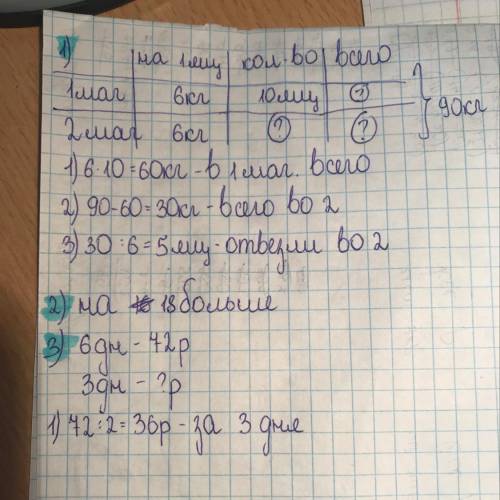 1) на 1 ящ кол.во всего
1 маг 6кг 10 ящ ?
2 маг 6кг ? ? } 90кг
1) 6·10=60кг-в 1 маг. всего
2) 90-60=30кг-всего во 2
3) 30:6=5 ящ-отвезли во 2
2) на 18 больше
3) 6дн - 72р
3дн - ?р
1) 72:2=36р-за 3 дня